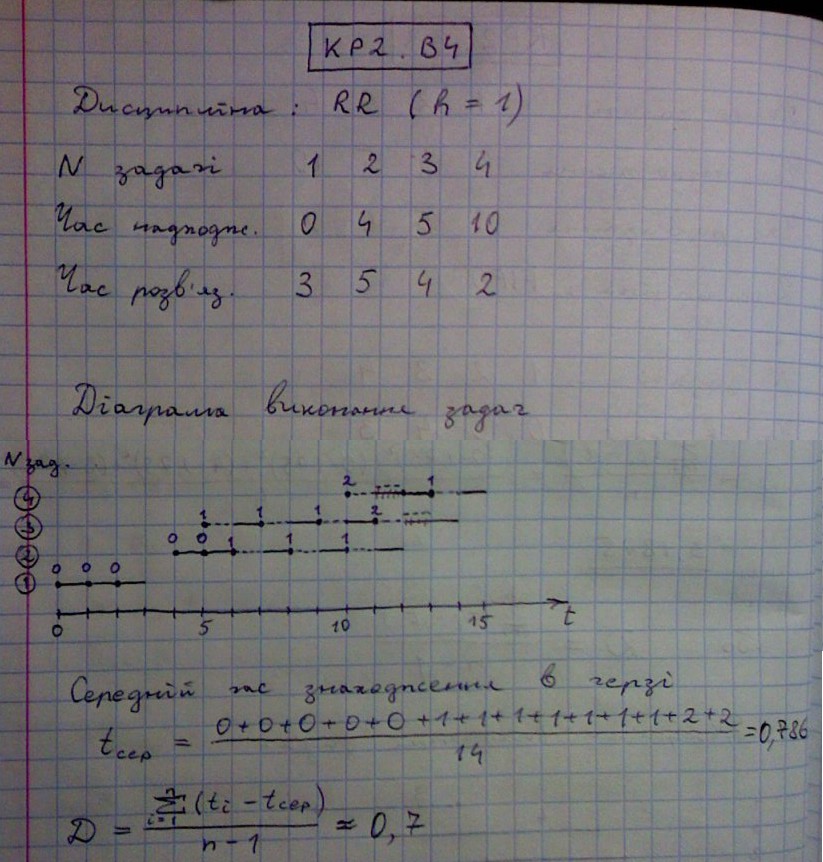 КР2. В4
Дисципліна : RR (h = 1)
N задачі 1 2 3 4
Час надходж. 0 4 5 10
Час розв'яз. 3 5 4 2
Діаграма виконання задач
N зад.
4 2 1
3 1 1 1 2
2 0 0 1 1 1
1 0 0 0
0 5 10 15 t
Середній час знаходження в черзі
tсер = (0+0+0+0+0+1+1+1+1+1+1+1+2+2)/14 = 0,786
D = (∑ i=1 n (ti - tсер))/(n-1) ≈ 0,7